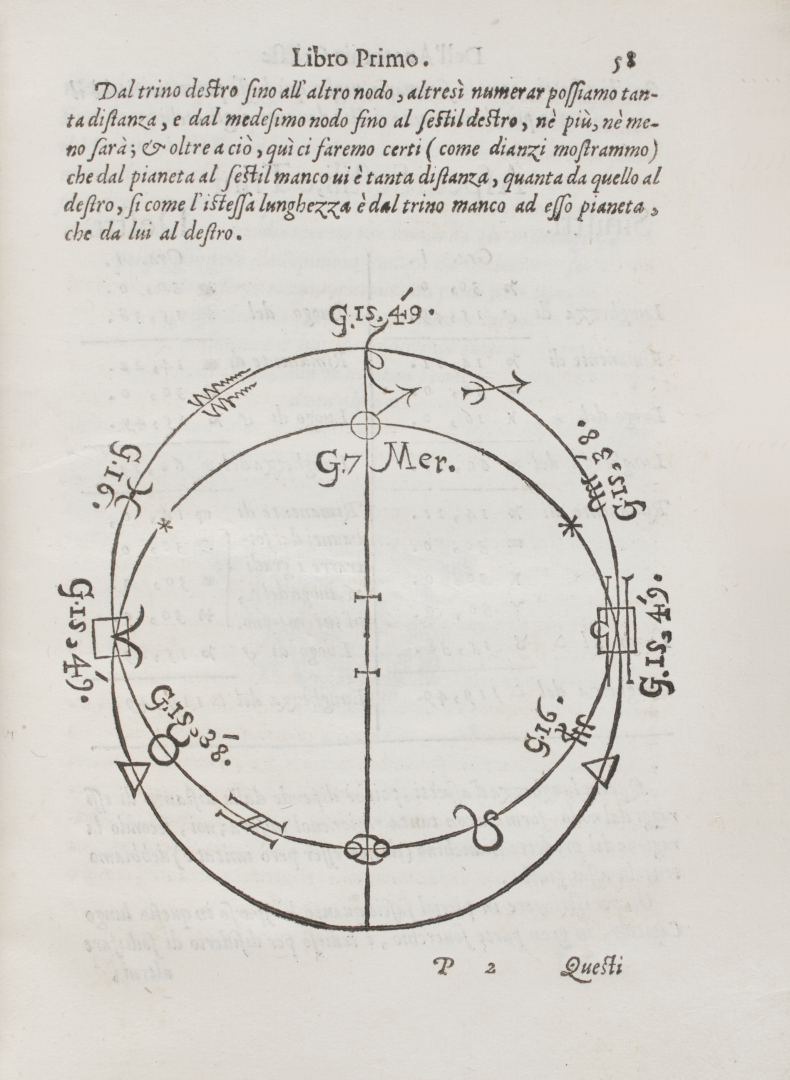 Libro Primo. 58
Dal trino destro fino all'altro nodo, altresì numerar possiamo tan-
ta distanza, e dal medesimo nodo fino al sestil destro, nè più, nè me-
no sarà; & oltre a ciò, quì ci faremo certi (come dianzi mostrammo)
che dal pianeta al sestil manco ui è tanta distanza, quanta da quello al
destro, sì come l'istessa lunghezza è dal trino manco ad esso pianeta,
che da lui al destro.
G. 15, 49.
G. 7 Mer.
G. 16.
G. 15, 38.
G. 15, 49.
G. 15, 49.
G. 15, 38.
G. 16.
P 2 Questi